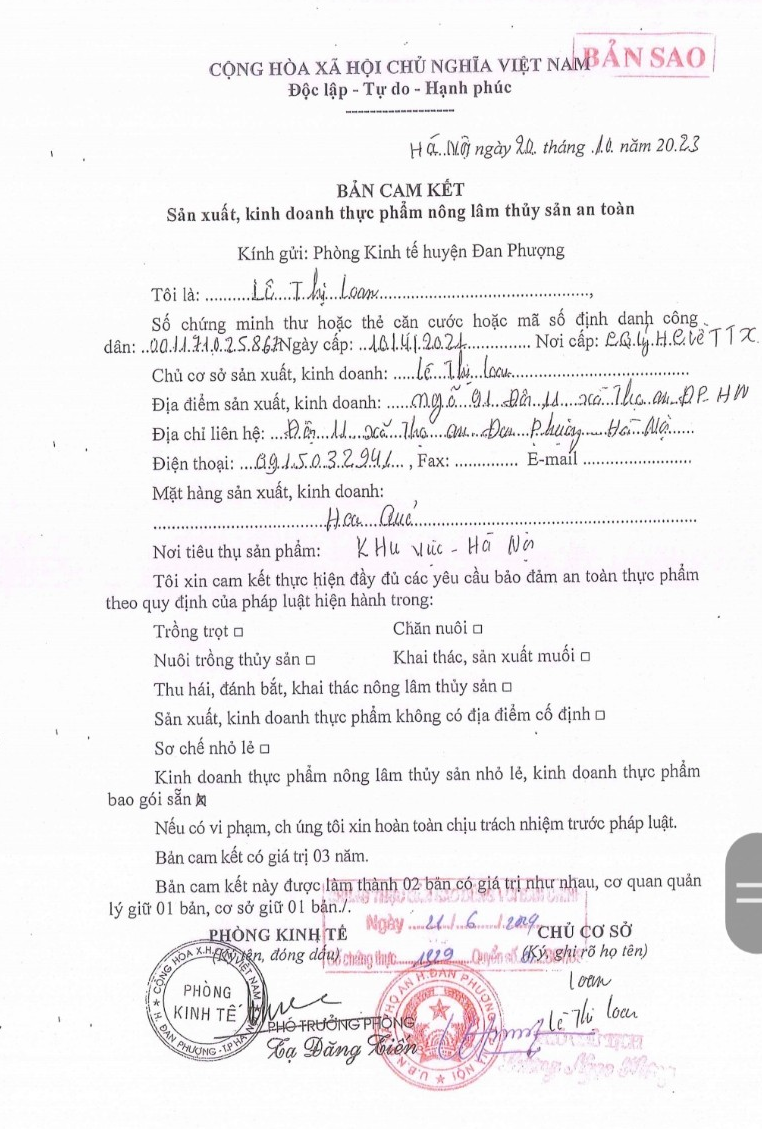 BẢN SAO
CỘNG HÒA XÃ HỘI CHỦ NGHĨA VIỆT NAM
Độc lập - Tự do - Hạnh phúc
Hà Nội ngày 20 tháng 10 năm 2023
BẢN CAM KẾT
Sản xuất, kinh doanh thực phẩm nông lâm thủy sản an toàn
Kính gửi: Phòng Kinh tế huyện Đan Phượng
Tôi là: Lê Thị Loan,
Số chứng minh thư hoặc thẻ căn cước hoặc mã số định danh công
dân: Ngày cấp: Nơi cấp:
Chủ cơ sở sản xuất, kinh doanh: Lê Thị Loan
Địa điểm sản xuất, kinh doanh: ngõ 91 11 xã Thọ an ĐP. HN
Địa chỉ liên hệ: 11 xã Thọ an Đan Phượng Hà Nội
Điện thoại: 0915032941, Fax: E-mail
Mặt hàng sản xuất, kinh doanh:
Hoa Quả
Nơi tiêu thụ sản phẩm: KHu vực - Hà Nội
Tôi xin cam kết thực hiện đầy đủ các yêu cầu bảo đảm an toàn thực phẩm
theo quy định của pháp luật hiện hành trong:
Trồng trọt □ Chăn nuôi □
Nuôi trồng thủy sản □ Khai thác, sản xuất muối □
Thu hái, đánh bắt, khai thác nông lâm thủy sản □
Sản xuất, kinh doanh thực phẩm không có địa điểm cố định □
Sơ chế nhỏ lẻ □
Kinh doanh thực phẩm nông lâm thủy sản nhỏ lẻ, kinh doanh thực phẩm
bao gói sẵn ☒
Nếu có vi phạm, ch úng tôi xin hoàn toàn chịu trách nhiệm trước pháp luật.
Bản cam kết có giá trị 03 năm.
Bản cam kết này được làm thành 02 bản có giá trị như nhau, cơ quan quản
lý giữ 01 bản, cơ sở giữ 01 bản./.
Ngày 21/6/2024
PHÒNG KINH TẾ CHỦ CƠ SỞ
(Ký tên, đóng dấu) (Ký, ghi rõ họ tên)
Số chứng thực 1929 Quyển số
CỘNG HÒA X.H. VIỆT NAM
PHÒNG
KINH TẾ
H. ĐAN PHƯỢNG - T.P HÀ NỘI
U.B.N THỌ AN H.ĐAN PHƯỢNG NỘI
Loan
Lê Thị Loan
PHÓ TRƯỞNG PHÒNG
Tạ Đăng Tiến